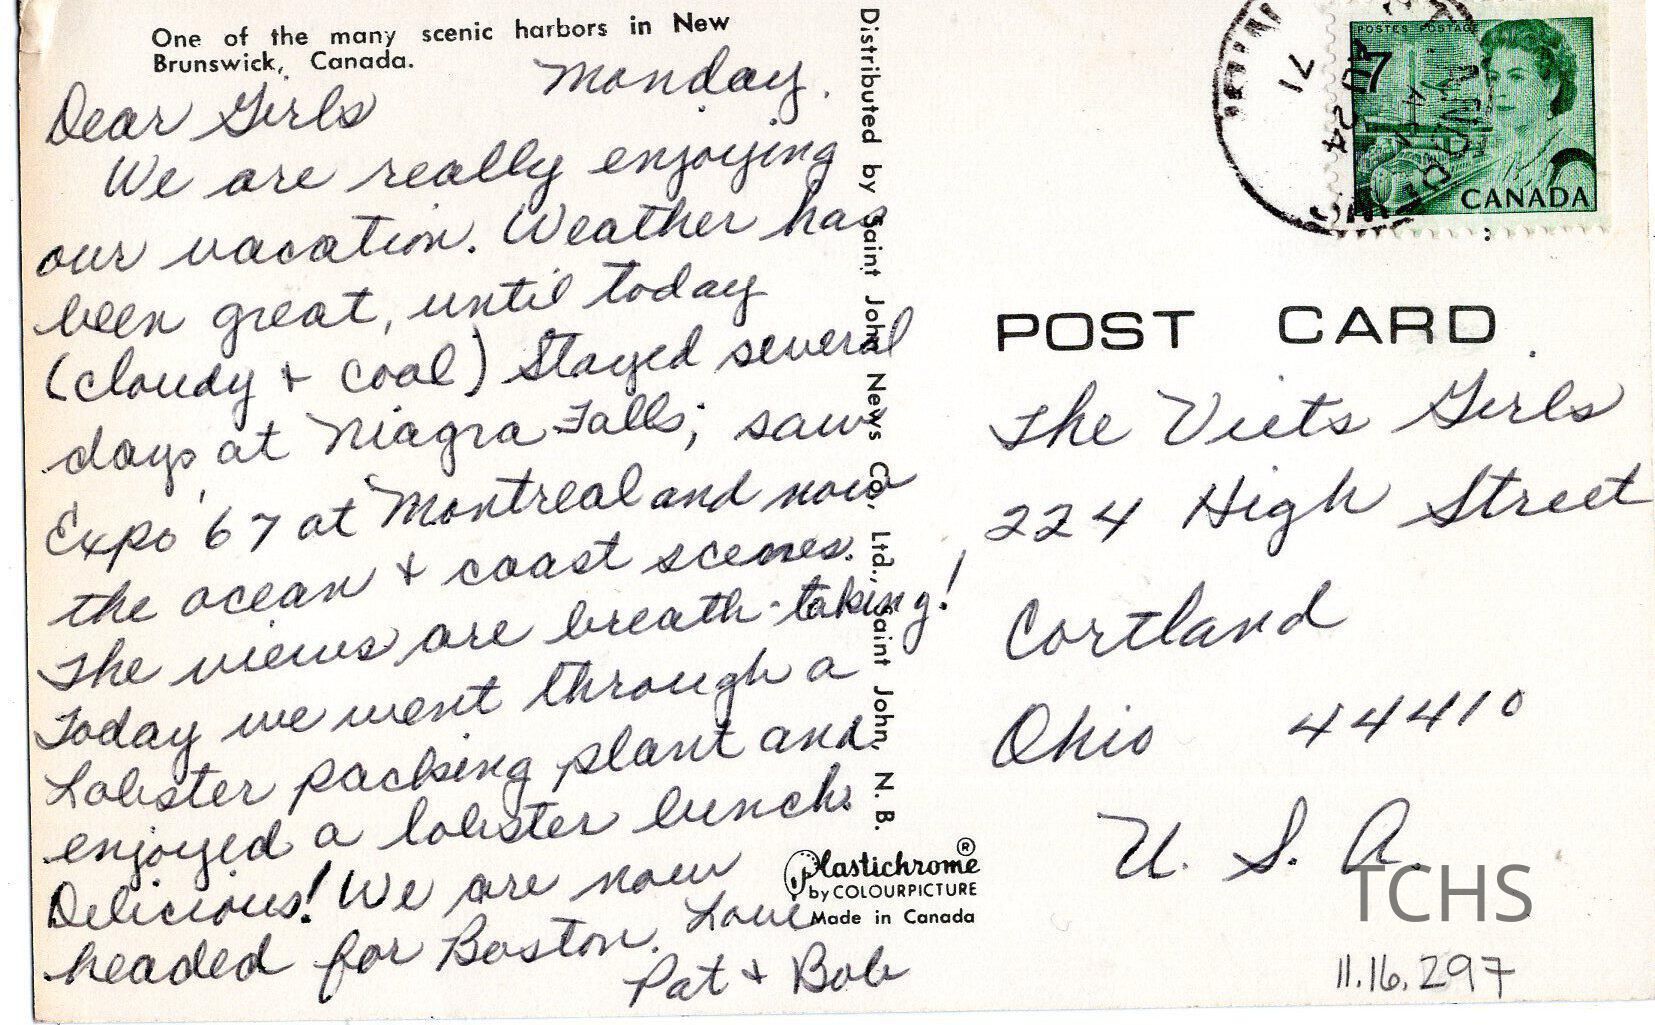 One of the many scenic harbors in New
Brunswick, Canada.
Monday.
Dear Girls
We are really enjoying
our vacation. Weather has
been great, until today
(cloudy + cool) Stayed several
days at Niagra Falls; saw
Expo '67 at Montreal and now
the ocean + coast scenes.
The views are breath-taking!
Today we went through a
Lobster packing plant and
enjoyed a lobster lunch.
Delicious! We are now
headed for Boston. Love
Pat + Bob
Distributed by Saint John News Co., Ltd., Saint John, N. B.
Plastichrome ®
by COLOURPICTURE
Made in Canada
71
24
POSTES POSTAGE
7
CANADA
POST CARD
The Viets Girls
224 High Street
Cortland
Ohio 44410
U. S. A.
TCHS
11.16.297